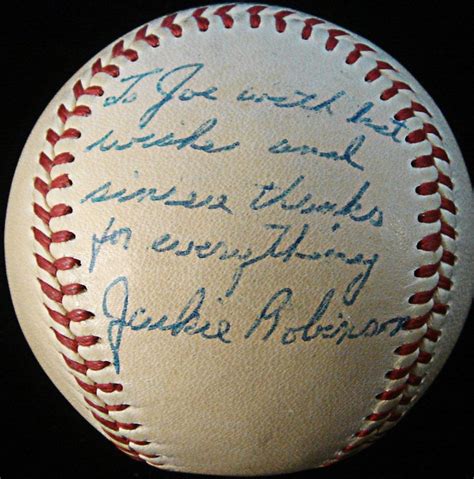 To Joe with best
wishes and
sincere thanks
for everything
Jackie Robinson